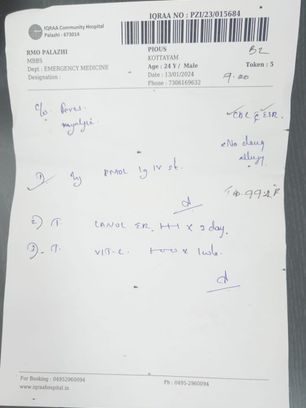 IQRAA Community Hospital
Palazhi - 673014
IQRAA NO : PZI/23/015684
RMO PALAZHI
MBBS
Dept : EMERGENCY MEDICINE
Designation :
PIOUS
KOTTAYAM
Age : 24 Y / Male
Date : 13/01/2024
Phone : 7306169632
Token : 5
9.20
c/o Fever
myalgia
CBC & ESR
No drug
allergy
1) Inj PAMOL 1g IV st.
99.2°F
2) T. CANOL ER x 2 day
3) T. VIT-C x 1 wk
For Booking : 04952960094
www.iqraahospital.in
Ph : 0495-2960094